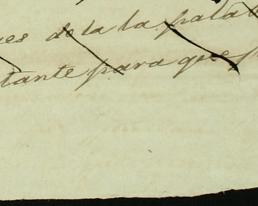 es de la la palab
tante para que